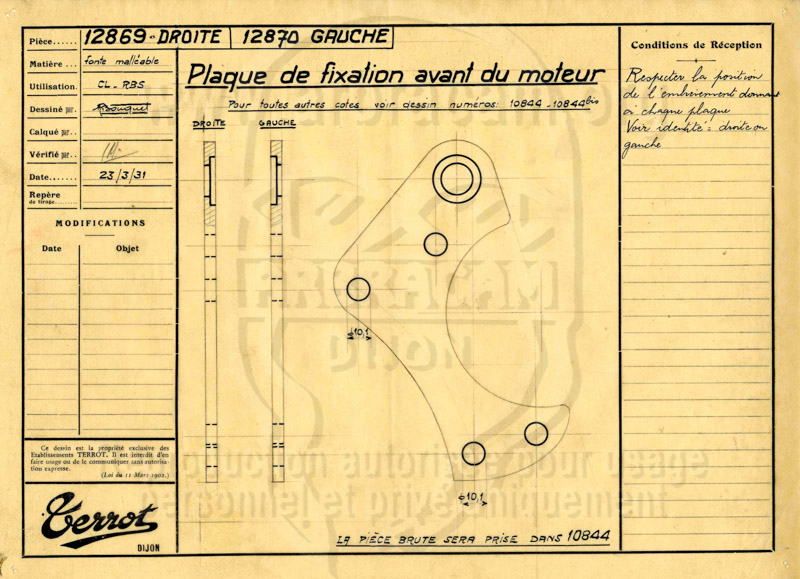 Pièce...... 12869-DROITE | 12870 GAUCHE
Matière ... fonte malléable
Utilisation. CL-RBS
Dessiné par..
Calqué par..
Vérifié par..
Date....... 23/3/31
Repère
de tirage........
MODIFICATIONS
Date Objet
Ce dessin est la propriété exclusive des
Etablissements TERROT. Il est interdit d'en
faire usage ou de le communiquer sans autorisa-
tion expresse.
(Loi du 11 Mars 1902.)
Terrot
DIJON
Plaque de fixation avant du moteur
Pour toutes autres cotes voir dessin numéros: 10844-10844bis
DROITE GAUCHE
ϕ10,1
ϕ10,1
LA PIÈCE BRUTE SERA PRISE DANS 10844
Conditions de Réception
Respecter la position
de l'embrèvement
à chaque plaque
Voir identité: droite ou
gauche
DIJON
reproduction autorisée pour usage
personnel et privé uniquement